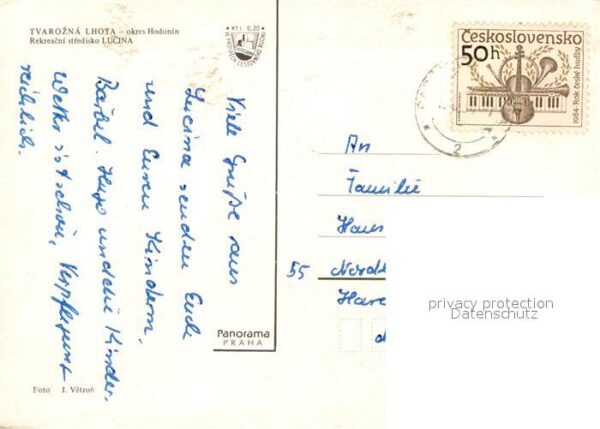 TVAROŽNÁ LHOTA – okres Hodonín
Rekreační středisko LUČINA
Kčs 0,20
Československo
50h
1984·Rok české hudby
2
Viele Grüße aus
Lucina senden Euch
und Euren Kindern,
Bärbel, Hugo und die Kinder.
Wetter ist schön, Verpflegung
reichlich.
An
Familie
Hans
55 Nordh
Panorama
PRAHA
Foto J. Větroň
privacy protection
Datenschutz